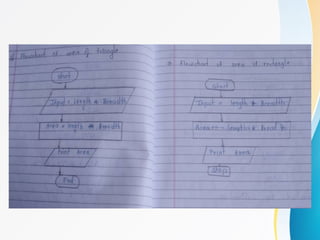 Flowchart of area of triangle
start
Input = length * Breadth
Area = length * Breadth
Print Area
End
Flowchart of area of rectangle
start
Input = length * Breadth
Area =
Print Area
Stop